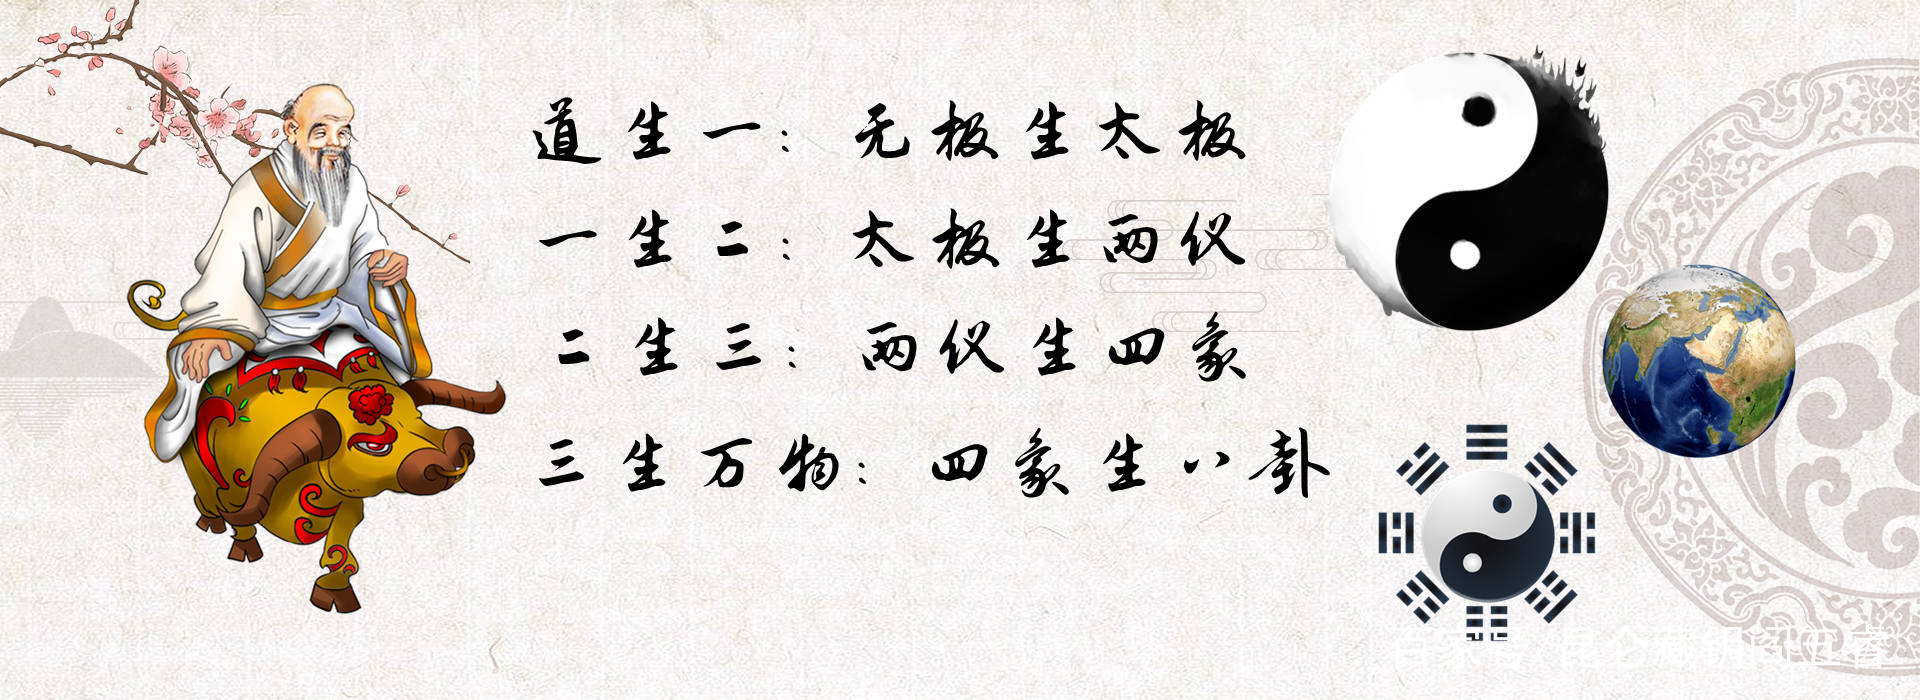 道生一：无极生太极
一生二：太极生两仪
二生三：两仪生四象
三生万物：四象生八卦
百家号